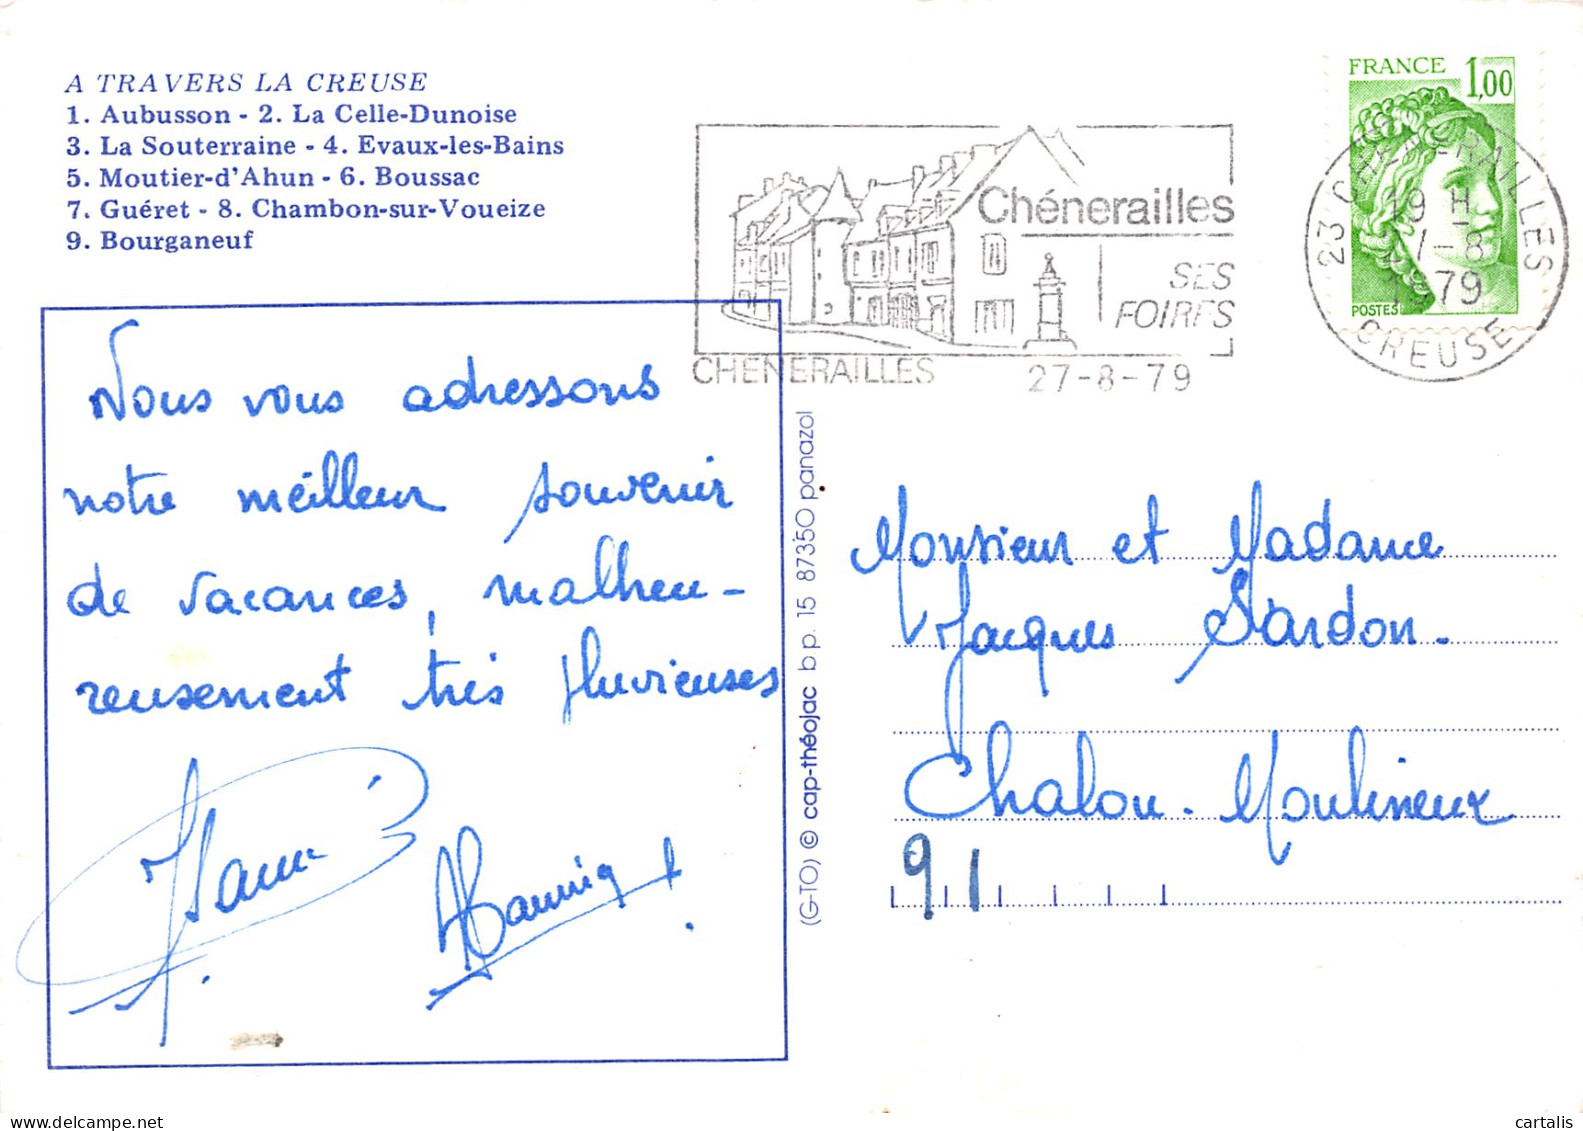 A TRAVERS LA CREUSE
1. Aubusson - 2. La Celle-Dunoise
3. La Souterraine - 4. Evaux-les-Bains
5. Moutier-d'Ahun - 6. Boussac
7. Guéret - 8. Chambon-sur-Voueize
9. Bourganeuf
Chénerailles
SES
FOIRES
CHENERAILLES 27-8-79
FRANCE 1,00
POSTES
23 CHENERAILLES
19 H
27-8
1979
CREUSE
Nous vous adressons
notre meilleur souvenir
de vacances, malheu-
reusement très pluvieuses
(G-TO) © cap-théojac b.p. 15 87350 panazol
Monsieur et Madame
Jacques Sardon.
Chalou-Moulineux
91
cartalis
delcampe.net